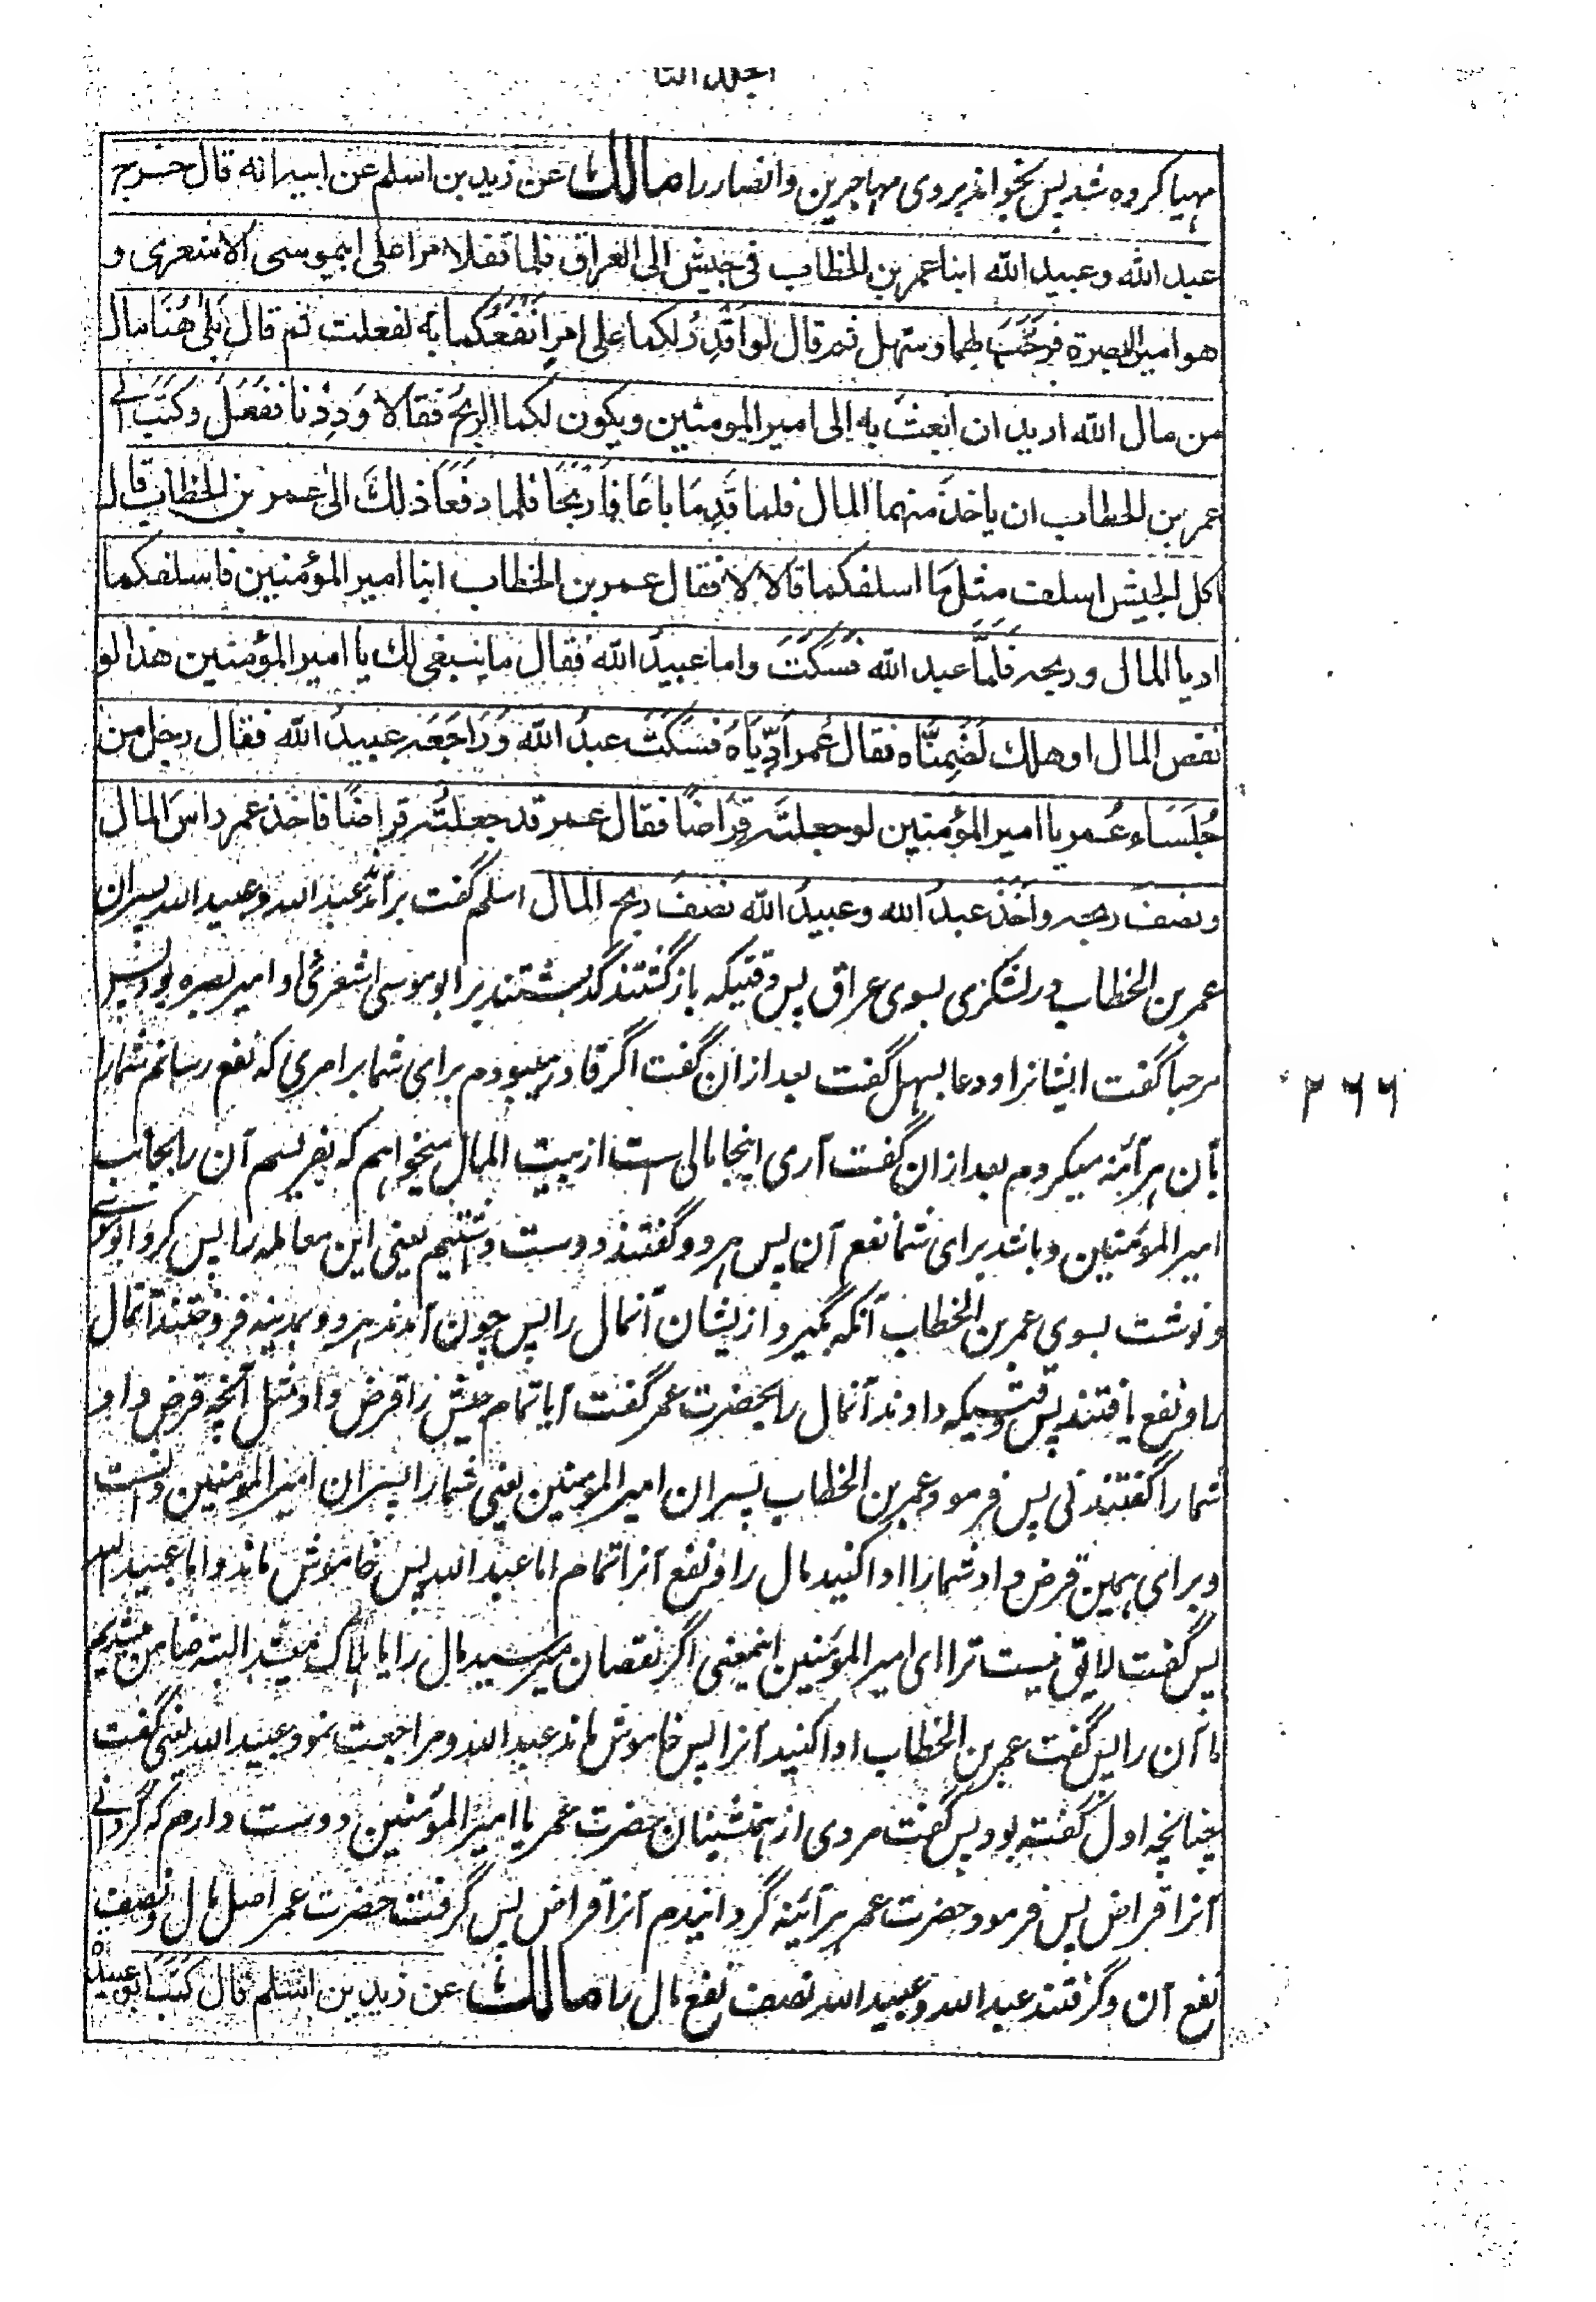 مهیا کرده شد پس بخواند بروی مهاجرین وانصار را مالك عن زيد بن اسلم عن ابيه انه قال خرج
عبد الله وعبيد الله ابنا عمر بن الخطاب فى جيش الى العراق فلما قفلا مرا على ابيموسى الاشعرى و
هو امير البصرة فرَحَّبَ بهما وسهل ثم قال لو اَقْدِرُ لكما على امرٍ اَنْفَعُكما به لفعلت ثم قال بَلى هٰهُنا مال
من مال الله اريد ان ابعث به الى امير المومنين ويكون لكما الربحُ فقالا وَدِدْنا ففَعَلَ وكَتَبَ الى
عمر بن الخطاب ان ياخذ منهما المال فلما قَدِمَا باعَا فاَرْبَحَا فلما دفَعَا ذلكَ الى عمر بن الخطاب قال
اكل الجيش اسلف مثل ما اسلفكما قالا لا فقال عمر بن الخطاب ابنا امير المؤمنين فاسلفكما
اديا المال وربحه فلمَّا عبد الله فسَكَتَ واما عبيدُ الله فقال ما ينبغى لك يا امير المؤمنين هذا لو
نقص المال او هلك لَضَمِنَّاه فقال عُمر اَدِّيَاهُ فسَكَتَ عبدُ الله وَرَاجَعَه عبيدُ الله فقال رجل من
جُلَسَاءِ عُمر يا امير المؤمنين لو جعلتَه قِرَاضًا فقال عمر قد جعلتُه قراضًا فاخذ عمر راسَ المال
ونصفَ ربحه واَخَذَ عبدُ الله وعبيدُ الله نصفَ ربح المال اسلم گفت برآمدند عبد الله وعبید الله پسران
عمر بن الخطاب در لشکری بسوی عراق پس وقتیکه بازگشتند گذشتند بر ابو موسی اشعری و او امیر بصره بود پس
مرحبا گفت ایشانرا ودعا بسهل گفت بعد ازان گفت اگر قادر میبودم برای شما بر امری که نفع رسانم شمارا
بآن هرآئنه میکردم بعد ازان گفت آری اینجا مالی ست از بیت المال میخواهم که بفرستم آن را بجانب
امیر المؤمنین وباشد برای شما نفع آن پس هر دو گفتند دوست داشتیم یعنی این معامله را پس کرد ابو موسی
ونوشت بسوی عمر بن الخطاب آنکه بگیرد از ایشان آنمال را پس چون آمدند هر دو بمدینه فروختند آنمال
را و نفع یافتند پس وقتیکه دادند آنمال را بحضرت عمر گفت آیا تمام جیش را قرض داد مثل آنچه قرض داد
شمارا گفتند نی پس فرمود عمر بن الخطاب پسران امیر المومنین یعنی شمارا پسران امیر المومنین دانست
و برای همین قرض داد شمارا ادا کنید مال را و نفع آنرا تمام اما عبد الله پس خاموش ماند واما عبید الله
پس گفت لایق نیست ترا ای امیر المؤمنین اینمعنی اگر نقصان میرسید مال را یا هلاک میشد البته ضامن میشدیم
ما آن را پس گفت عمر بن الخطاب ادا کنید آنرا پس خاموش ماند عبد الله ومراجعت نمود عبید الله یعنی گفت
چنانچه اول گفته بود پس گفت مردی از همنشینان حضرت عمر یا امیر المؤمنین دوست دارم که گردانی
آنرا قراض پس فرمود حضرت عمر هرآئینه گردانیدم آنرا قراض پس گرفت حضرت عمر اصل مال و نصف
نفع آن وگرفتند عبد الله وعبید الله نصف نفع مال را مالك عن زيد بن اسلم قال كَتَبَ ابو عبيدة
۲۶۶